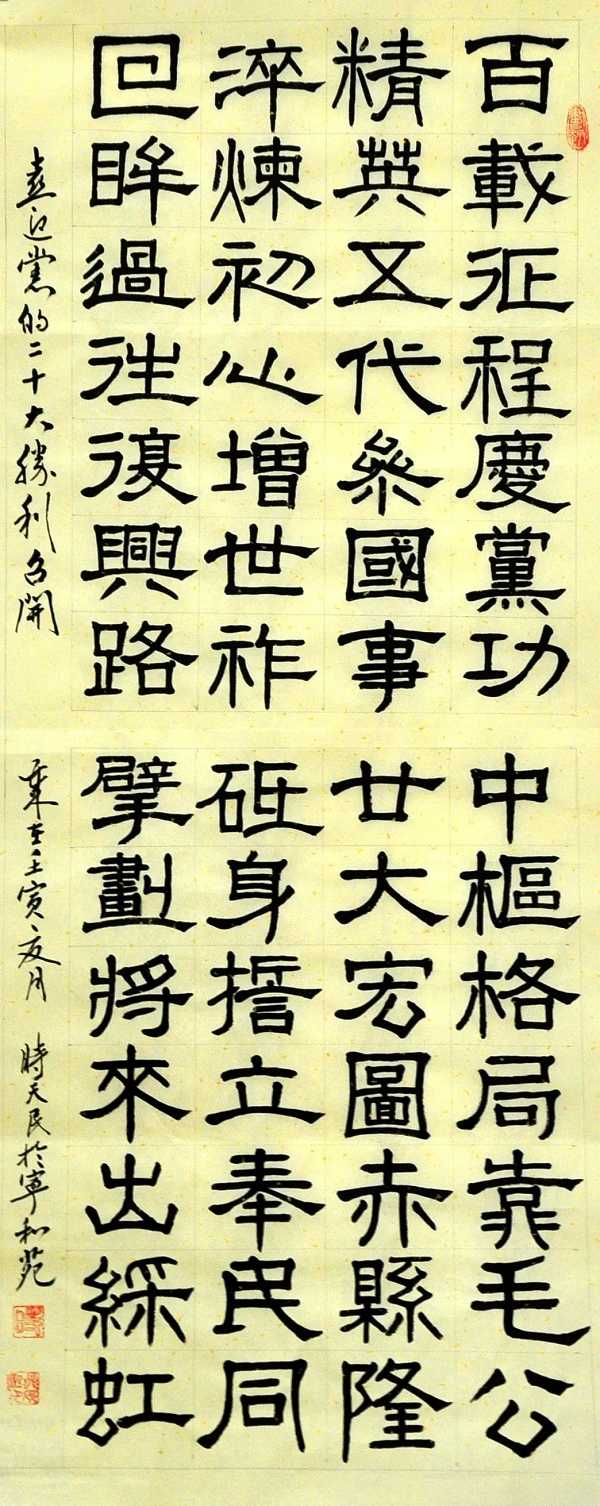 百載征程慶黨功 中樞格局靠毛公
精英五代參國事 廿大宏圖赤縣隆
淬煉初心增世祚 砥身誓立奉民同
回眸過往復興路 擘劃將來出綵虹
喜迎黨的二十大勝利召開 歲在壬寅夏月 時天民於寧和苑